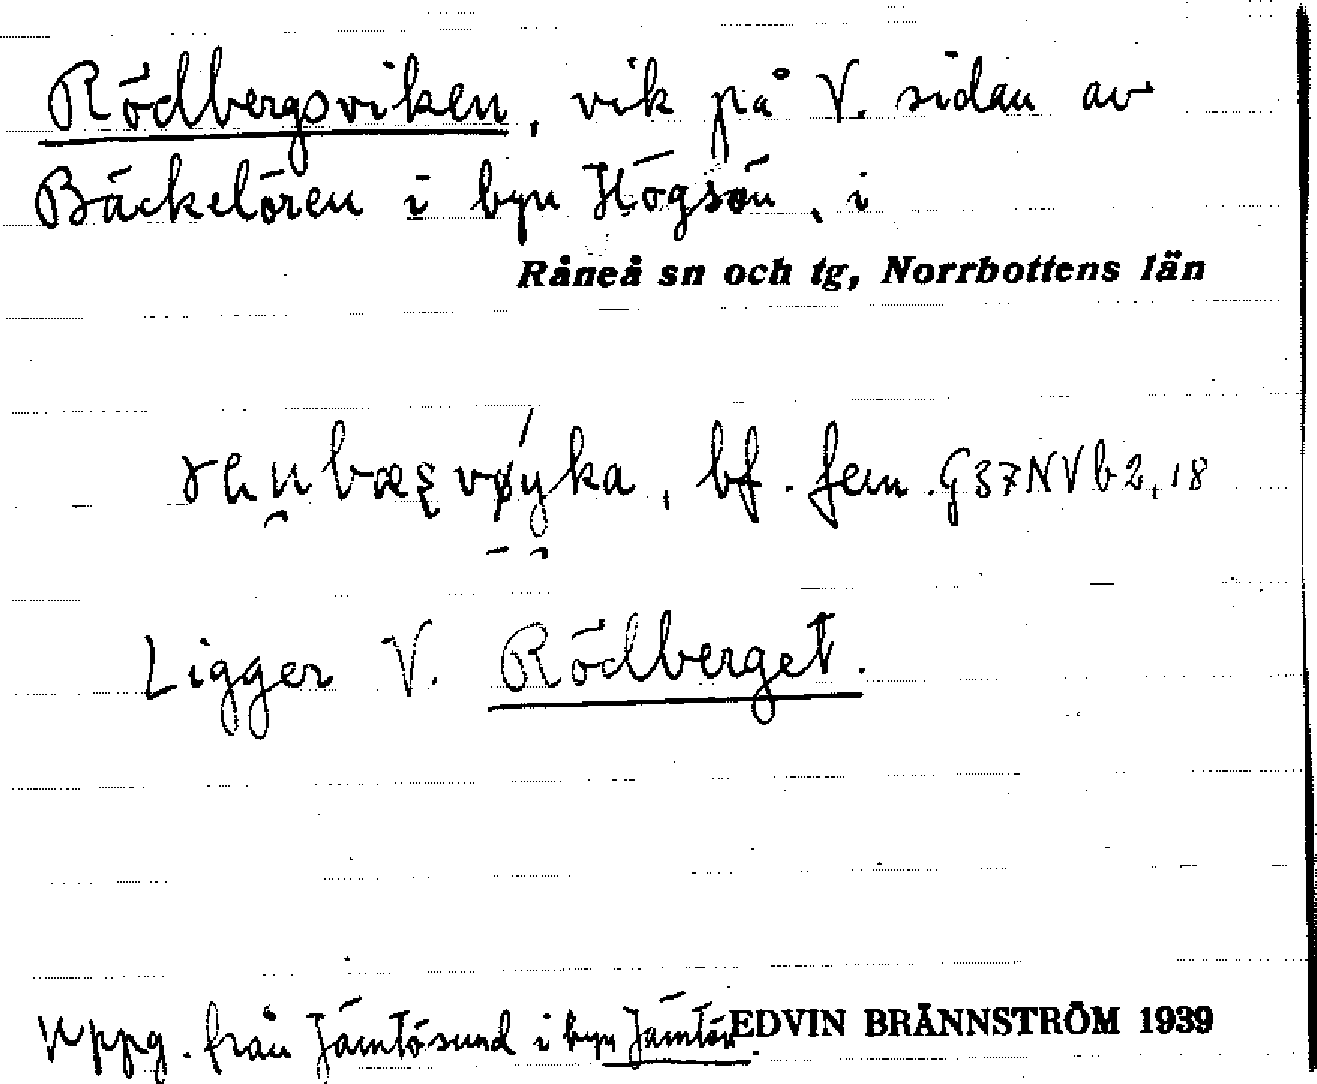 Rödbergsviken, vik på V. sidan av
Bäckelören i byn Högsön, i
Råneå sn och tg, Norrbottens län
bf. fem. G37NVb2,18
Ligger V. Rödberget.
Uppg. från Jämtösund i byn Jämtön. EDVIN BRÄNNSTRÖM 1939